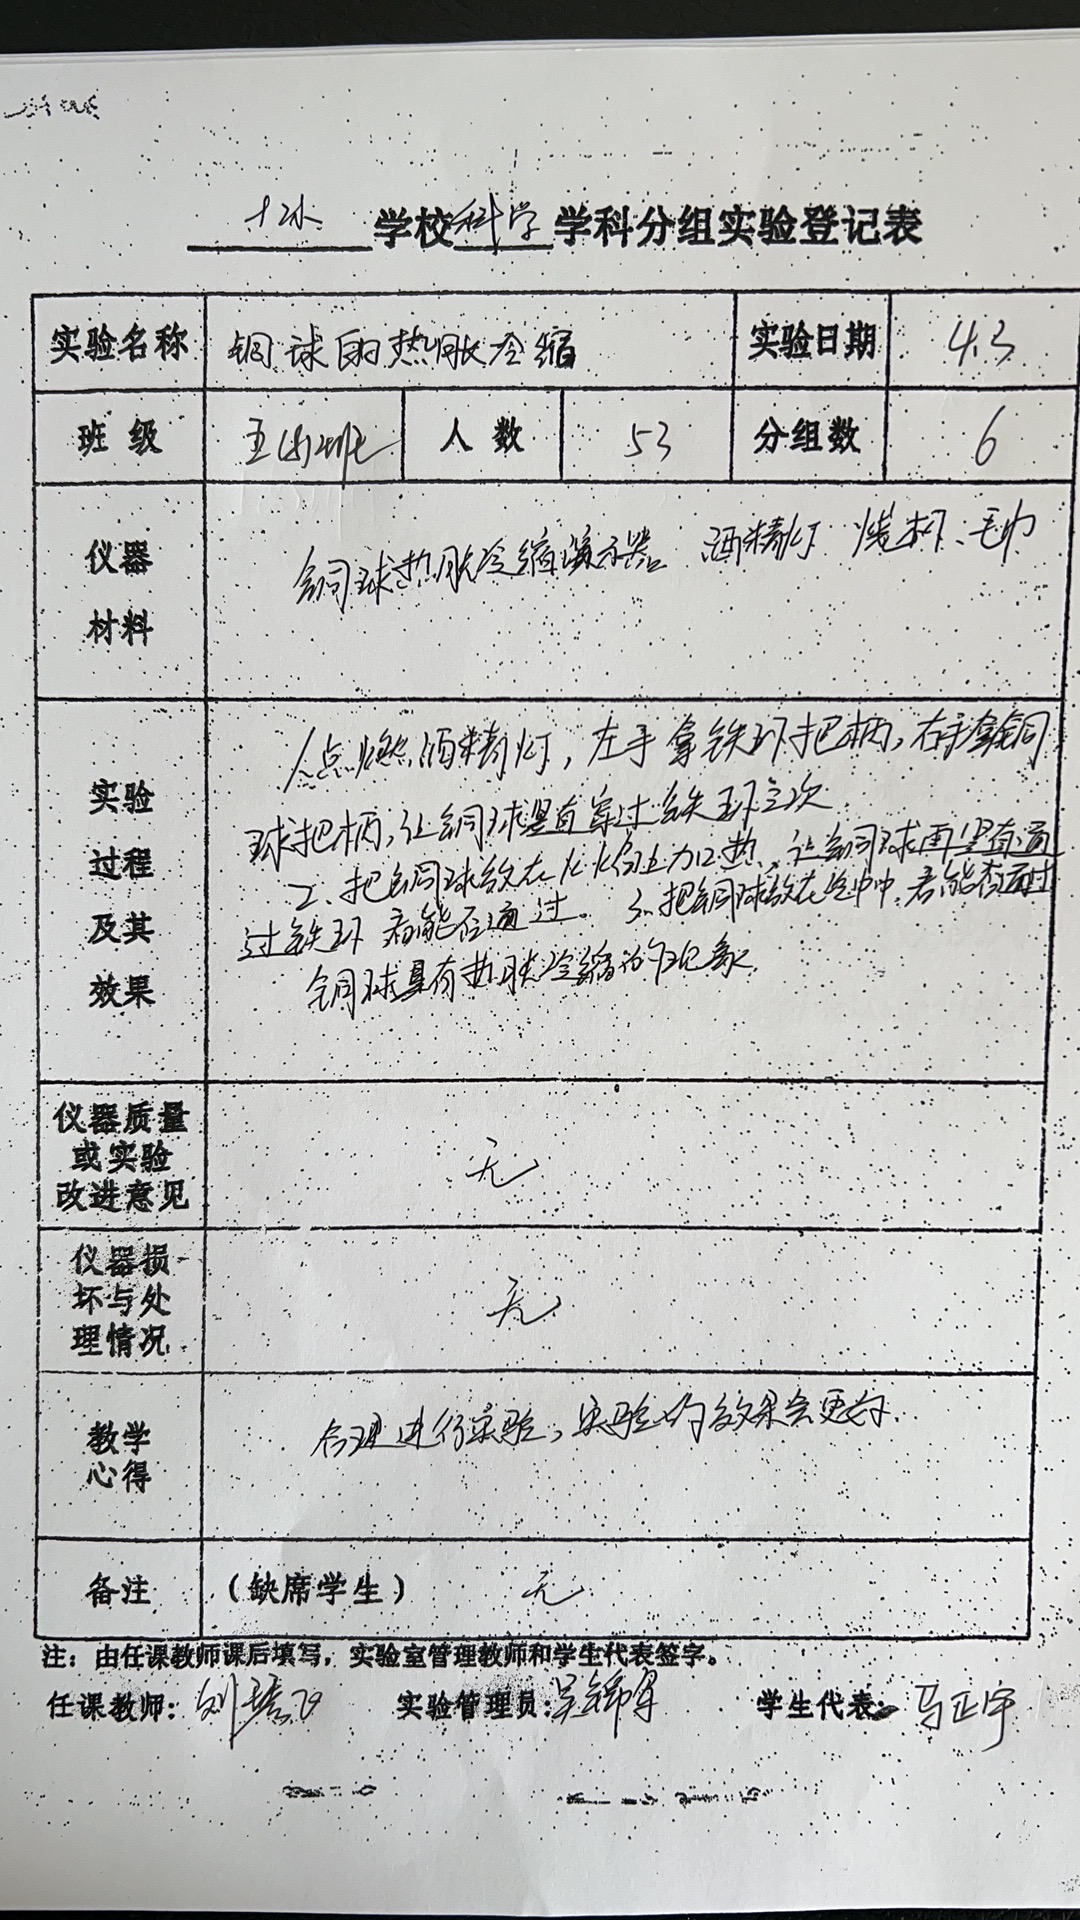 十环 学校 科学 学科分组实验登记表
实验名称 铜球的热胀冷缩 实验日期 4.3
班级 五(4)班 人数 53 分组数 6
仪器材料 铜球热胀冷缩演示器 酒精灯 烧杯、毛巾
实验过程及其效果
1、点燃酒精灯，左手拿铁环把柄，右手拿铜
球把柄，让铜球竖直穿过铁环三次
2、把铜球放在火焰上加热，让铜球再竖直通
过铁环 看能否通过. 3、把铜球放在 中，看能否通过
铜球具有热胀冷缩的现象.
仪器质量或实验改进意见 无
仪器损坏与处理情况 无
教学心得 合理进行实验，实验的效果会更好.
备注 （缺席学生） 无
注：由任课教师课后填写，实验室管理教师和学生代表签字。
任课教师: 刘 实验管理员: 吴锦 学生代表: 马正宇